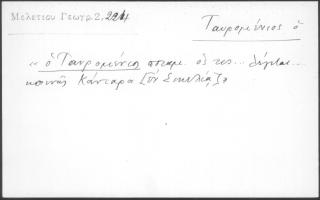 Μελετίου Γεωγρ. 2, 224
Ταυρομένιος ὁ
« ὁ Ταυρομένιος ποταμ. ὃς τις... λέγεται...
κοινῶς Κάνταρα [ἐν Σικελίᾳ]»